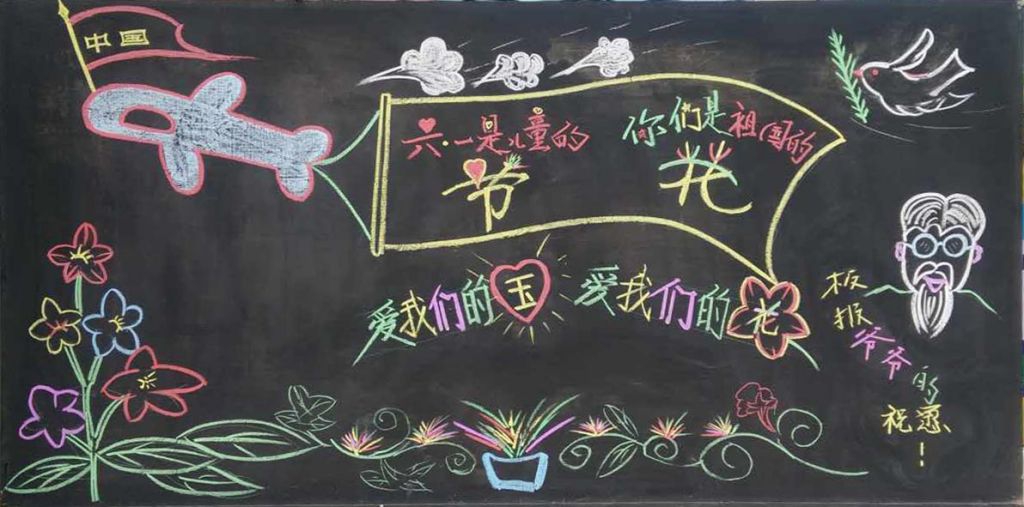 中国
六·一是儿童的
节
你们是祖国的
花
爱我们的国
爱我们的花
板报
爷爷
的
祝愿!